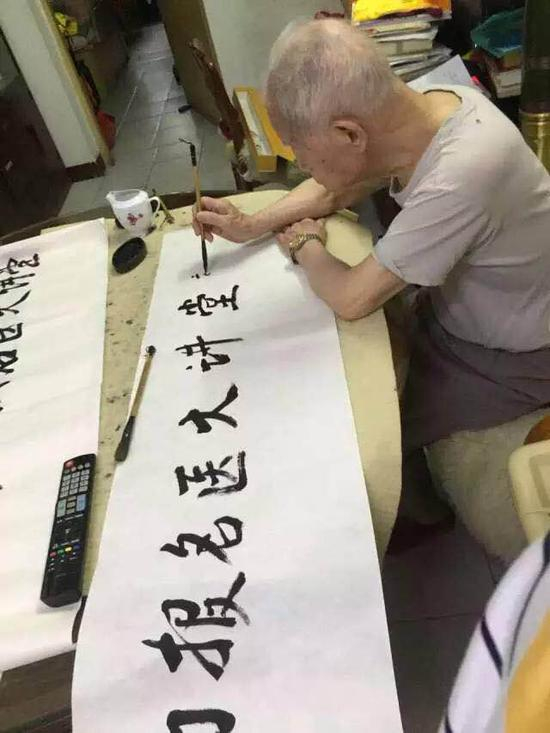 报名医大讲堂
名医大讲堂